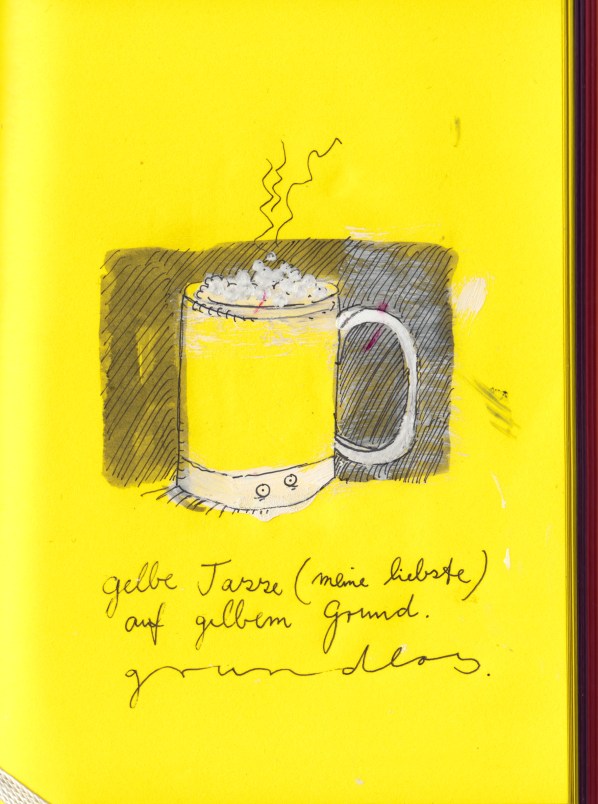 gelbe Tasse (meine liebste)
auf gelbem Grund.
grundlos.